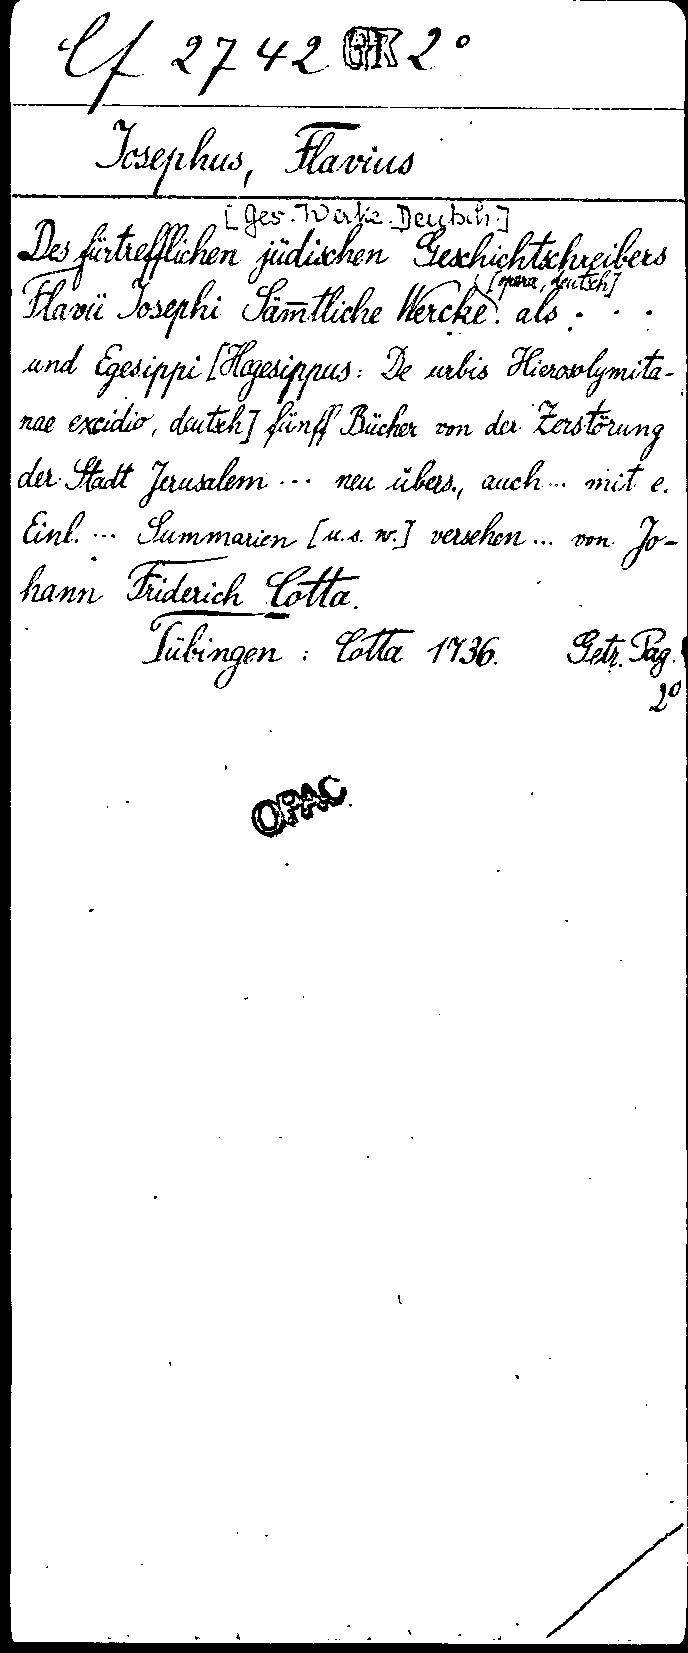 Cf 2742 GR 2°
Josephus, Flavius
[Ges. Werke. Deutsch.]
Des fürtrefflichen jüdischen Geschichtschreibers
[opera, deutsch]
Flavii Josephi Säm̄tliche Wercke. als . . .
und Egesippi [Hegesippus: De urbis Hierosolymita-
nae excidio, deutsch] fünff Bücher von der Zerstörung
der Stadt Jerusalem ... neu übers., auch ... mit e.
Einl. ... Summarien [u.s.w.] versehen ... von Jo-
hann Friderich Cotta.
Tübingen : Cotta 1736. Getr. Pag.
2°
OPAC